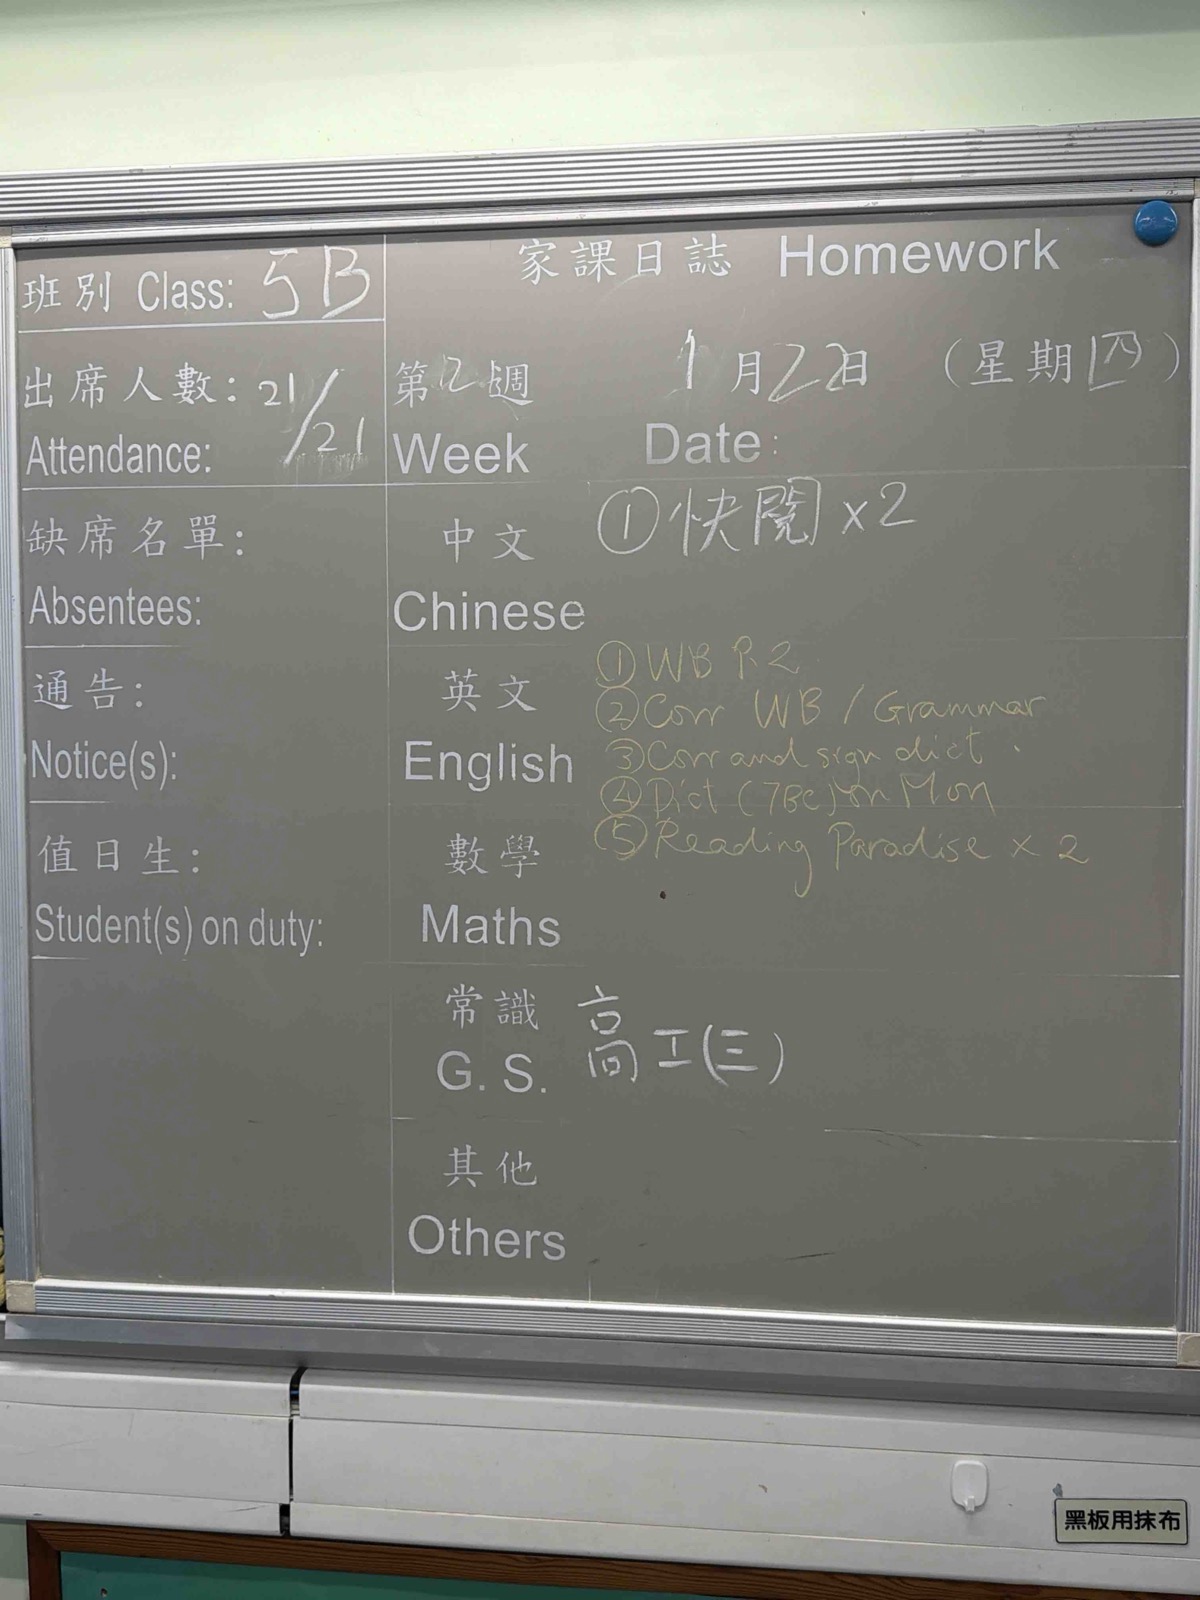 家課日誌 Homework
班別 Class: 5B
出席人數: 21/21
Attendance:
第12週
Week
1月22日 (星期四)
Date:
缺席名單:
Absentees:
中文
Chinese
① 快閱 x2
通告:
Notice(s):
英文
English
① WB P.2
② Corr WB / Grammar
③ Corr and sign dict.
④ Dict (7BC) on Mon
⑤ Reading Paradise x 2
值日生:
Student(s) on duty:
數學
Maths
常識
G. S.
高工(三)
其他
Others
黑板用抹布